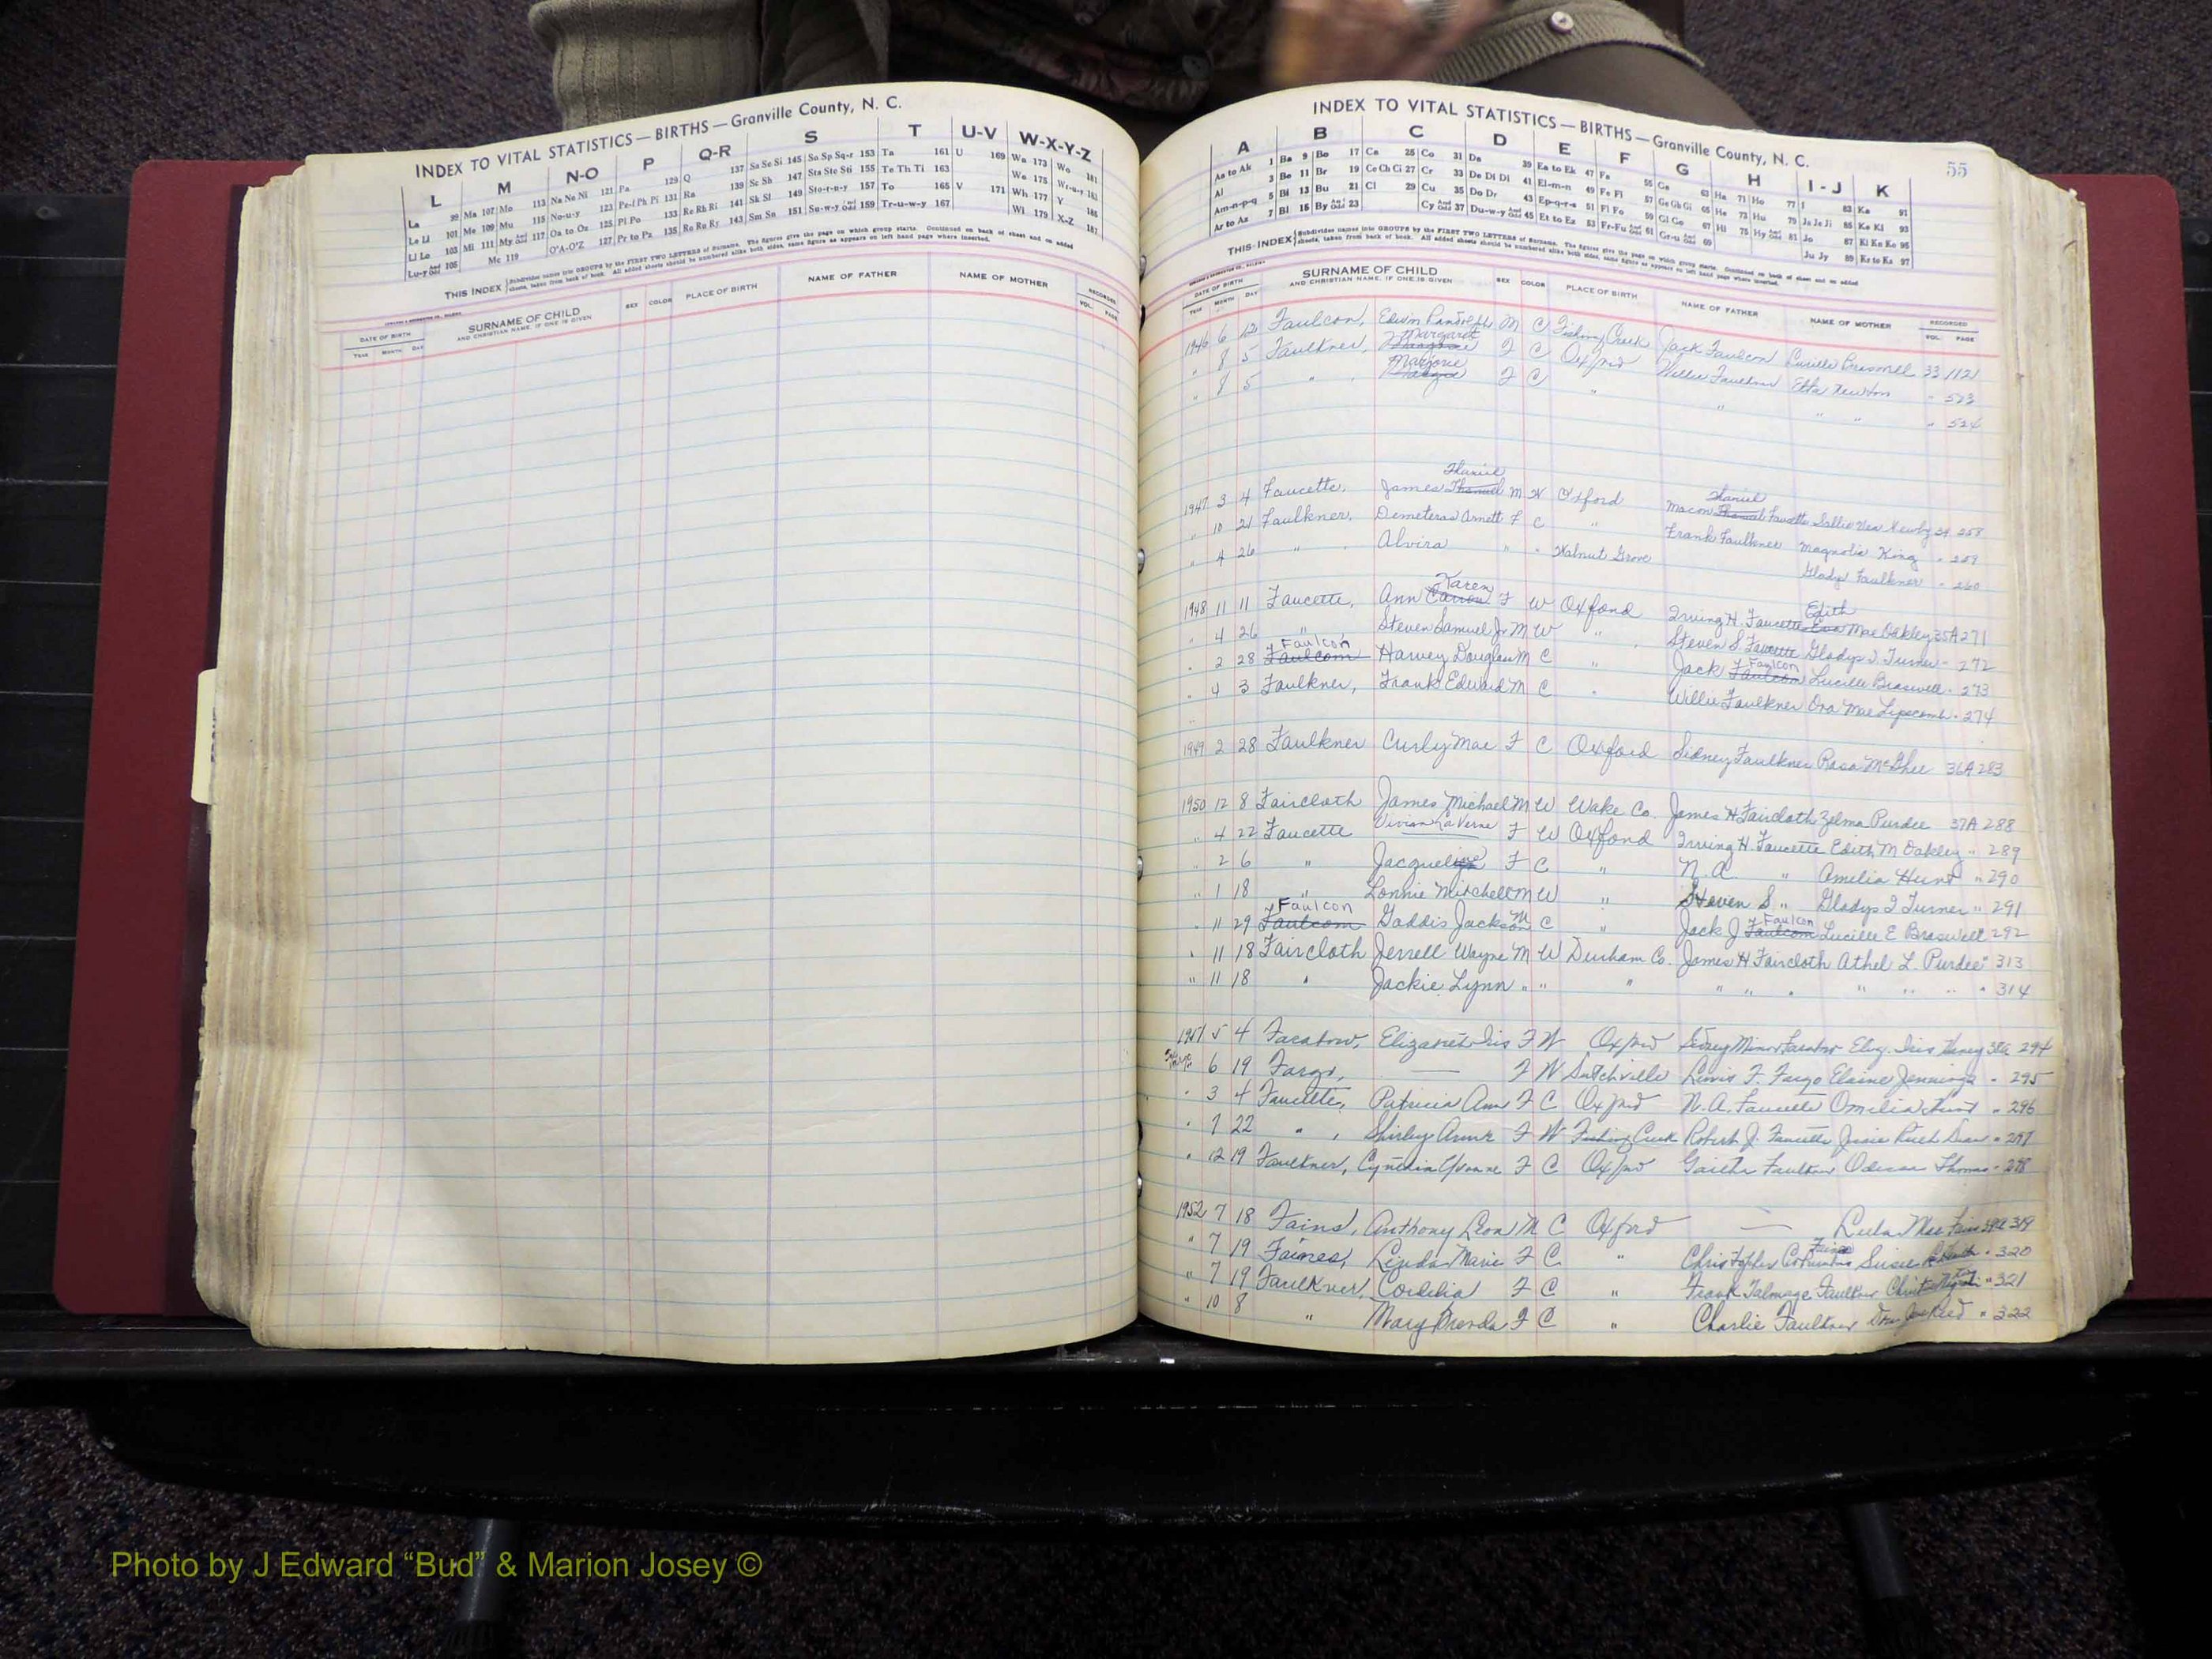 INDEX TO VITAL STATISTICS — BIRTHS — Granville County, N. C.
L M N-O P Q-R S T U-V W-X-Y-Z
La 99 Ma 107 Mo 113 Na Ne Ni 121 Pa 129 Q 137 Sa Se Si 145 So Sp Sq-r 153 Ta 161 U 169 Wa 173 Wo 181
Le Li 101 Me 109 Mu 115 No-u-y 123 Pe-f Ph Pi 131 Ra 139 Sc Sh 147 Sta Ste Sti 155 Te Th Ti 163 We 175 Wr-u-y 183
Ll Lo 103 Mi 111 My And Odd 117 Oa to Oz 125 Pl Po 133 Re Rh Ri 141 Sk Sl 149 Sto-r-u-y 157 To 165 V 171 Wh 177 Y 185
Lu-y And Odd 105 Mc 119 O'A-O'Z 127 Pr to Pz 135 Ro Ru Ry 143 Sm Sn 151 Su-w-y And Odd 159 Tr-u-w-y 167 Wi 179 X-Z 187
THIS INDEX Subdivides names into GROUPS by the FIRST TWO LETTERS of Surname. The figures give the page on which group starts. Continued on back of sheet and on added
sheets, taken from back of book. All added sheets should be numbered alike both sides, same figure as appears on left hand page where inserted.
DATE OF BIRTH SURNAME OF CHILD SEX COLOR PLACE OF BIRTH NAME OF FATHER NAME OF MOTHER RECORDED
YEAR MONTH DAY AND CHRISTIAN NAME, IF ONE IS GIVEN VOL. PAGE
INDEX TO VITAL STATISTICS — BIRTHS — Granville County, N. C.
55
A B C D E F G H I - J K
Aa to Ak 1 Ba 9 Bo 17 Ca 25 Co 31 Da 39 Ea to Ek 47 Fa 55 Ga 63 Ha 71 Ho 77 I 83 Ka 91
Al 3 Be 11 Br 19 Ce Ch Ci 27 Cr 33 De Di Dl 41 El-m-n 49 Fe Fi 57 Ge Gh Gi 65 He 73 Hu 79 Ja Je Ji 85 Ke Kl 93
Am-n-p-q 5 Bi 13 Bu 21 Cl 29 Cu 35 Do Dr 43 Ep-q-r-s 51 Fl Fo 59 Gl Go 67 Hi 75 Hy And Odd 81 Jo 87 Ki Kn Ko 95
Ar to Az 7 Bl 15 By And Odd 23 Cy And Odd 37 Du-w-y And Odd 45 Et to Ez 53 Fr-Fu And Odd 61 Gr-u And Odd 69 Ju Jy 89 Kr to Kz 97
THIS INDEX Subdivides names into GROUPS by the FIRST TWO LETTERS of Surname. The figures give the page on which group starts. Continued on back of sheet and on added
sheets, taken from back of book. All added sheets should be numbered alike both sides, same figure as appears on left hand page where inserted.
DATE OF BIRTH SURNAME OF CHILD SEX COLOR PLACE OF BIRTH NAME OF FATHER NAME OF MOTHER RECORDED
YEAR MONTH DAY AND CHRISTIAN NAME, IF ONE IS GIVEN VOL. PAGE
1946 6 12 Faulcon, Edwin Randolph M C Fishing Creek Jack Faulcon Lucille Braswell 33 1121
" 8 5 Faulkner, Margaret F C Oxford Willie Faulkner Etta Newton " 523
" 8 5 " Marjorie F C " " " " 524
1947 3 4 Faucette, James Thaniel M W Oxford Macon Thaniel Faucette Sallie Newby 34 258
" 10 21 Faulkner, Demeteras Arnett F C " Frank Faulkner Magnolia King " 259
" 4 26 " Alvira " " Walnut Grove Gladys Faulkner " 260
1948 11 11 Faucette, Ann Karen F W Oxford Irving H. Faucette Edith Mae Oakley 35A 271
" 4 26 " Steven Samuel Jr M W " Steven S. Faucette Gladys I. Turner " 272
" 2 28 Faulcon Harvey Douglas M C " Jack Faulcon Lucille Braswell " 273
" 4 3 Faulkner, Frank Edward M C " Willie Faulkner Ora Mae Lipscomb " 274
1949 2 28 Faulkner Curly Mae F C Oxford Sidney Faulkner Rosa McGhee 36A 283
1950 12 8 Faircloth James Michael M W Wake Co. James H Faircloth Zelma Purdee 37A 288
" 4 22 Faucette Vivian LaVerne F W Oxford Irving H. Faucette Edith M Oakley " 289
" 2 6 " F C " N.A. " Amelia Hunt " 290
" 1 18 " Lonnie Mitchell M W " Steven S " Gladys I Turner " 291
" 11 29 Faulcon Gaddis Jackson M C " Jack J Faulcon Lucille E Braswell 292
" 11 18 Faircloth Jerrell Wayne M W Durham Co. James H Faircloth Athel L. Purdee " 313
" 11 18 " Jackie Lynn " " " " " " " " " " 314
1951 5 4 Elizabeth Iris F W Oxford Iris 294
6 19 Fargo, — F W Lewis F. Fargo Elaine Jennings " 295
" 3 4 Faucette, Patricia Ann F C Oxford N.A. Faucette Omelia Hunt " 296
" 7 22 " , Shirley F W Fishing Creek Robert J. Faucette Ruth " 297
" 12 19 Faulkner, Cynthia Yvonne F C Oxford Faulkner Odessa Thomas " 298
1952 7 18 Fains, Anthony Leon M C Oxford — Lula Mae 319
" 7 19 Faines, Linda Marie F C " Christopher Columbus Faines Susie " 320
" 7 19 Faulkner, Cordelia F C " Frank Talmage Faulkner " 321
" 10 8 " Mary Brenda F C " Charlie Faulkner " 322
Photo by J Edward “Bud” & Marion Josey ©